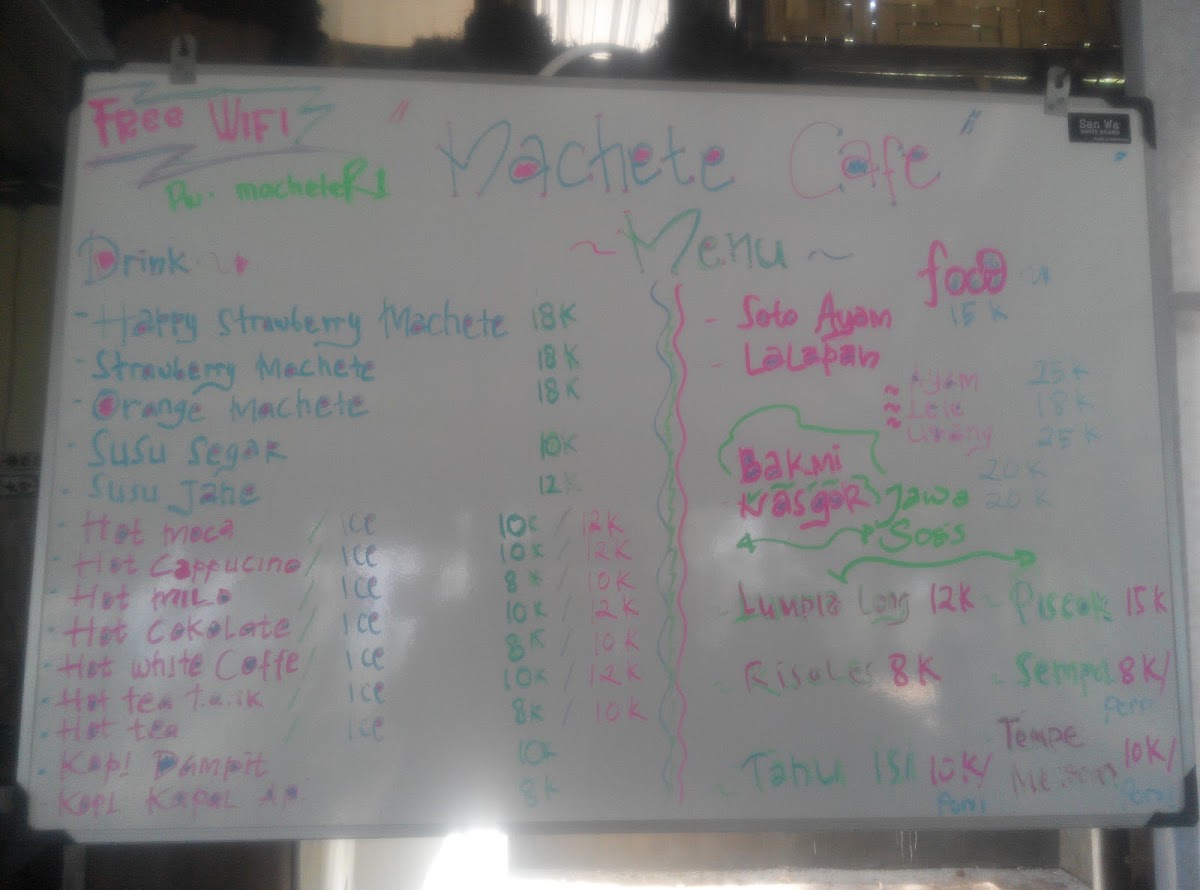 Free WIFI
Pw. macheteR1
" Machete Cafe "
San Wa
~ Menu ~
Drink
- Happy Strawberry Machete 18K
- Strawberry Machete 18K
- Orange Machete 18K
- Susu Segar 10K
- Susu Jahe 12K
- Hot moca / ICE 10K / 12K
- Hot Cappucino / ICE 10K / 12K
- Hot MILO / ICE 8K / 10K
- Hot Cokolate / ICE 10K / 12K
- Hot white Coffe / ICE 8K / 10K
- Hot tea t.a.ik / ICE 10K / 12K
- Hot tea / ICE 8K / 10K
- Kopi Dampit 10K
- Kopi Kapal AP 8K
food
- Soto Ayam 15K
- Lalapan
~ Ayam 25K
~ Lele 18K
~ 25K
Bakmi 20K
- Nasgor Jawa 20K
Sosis
- Lumpia Long 12K - Piscok 15K
- Risoles 8K - Sempol 8K/
Porsi
- Tahu ISI 10K/ Tempe
Porsi
10K/
Porsi